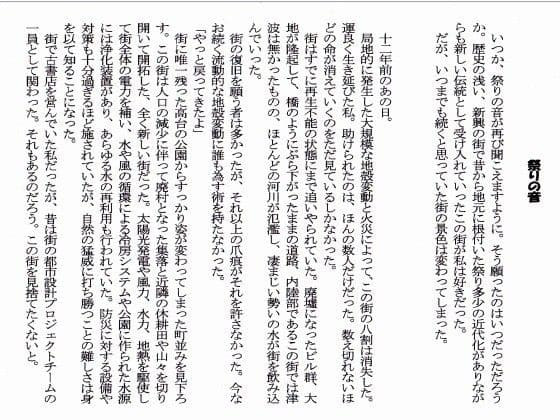 祭りの音
いつか、祭りの音が再び聞こえますように。そう願ったのはいつだっただろう
か。歴史の浅い、新興の街で昔から地元に根付いていた祭り多少の近代化がありなが
らも新しい伝統として受け入れていったこの街が私は好きだった。
だが、いつまでも続くと思っていた街の景色は変わってしまった。
十二年前のあの日。
局地的に発生した大規模な地殻変動と火災によって、この街の八割は消失した。
運良く生き延びた私。助けられたのは、ほんの数人だけだった。数え切れないほ
どの命が消えていくのをただ見ているしかなかった。
街はすでに再生不能の状態にまで追いやられていた。廃墟になったビル群、大
地が隆起して、橋のようにぶら下がったままの道路、内陸部であるこの街では津
波は無かったものの、ほとんどの河川が氾濫し、凄まじい勢いの水が街を飲み込
んでいった。
街の復旧を願う者は多かったが、それ以上の爪痕がそれを許さなかった。今な
お続く流動的な地殻変動に誰も為す術を持たなかった。
「やっと戻ってきたよ」
街に唯一残った高台の公園からすっかり姿が変わってしまった町並みを見下ろ
す。この街は人口の減少に伴って廃村となった集落と近隣の休耕田や山々を切り
開いて開拓した、全く新しい村だった。太陽光発電や風力、水力、地熱を駆使し
て街全体の電力を補い、水や風の循環による冷房システムや公園に作られた水源
には浄化装置があり、あらゆる水の再利用も行われていた。防災に対する設備や
対策も十分過ぎるほど施されていたが、自然の猛威に打ち勝つことの難しさは身
を以て知ることになった。
街で古書店を営んでいた私だったが、昔は街の都市設計プロジェクトチームの
一員として関わった。それもあるのだろう。この街を見捨てたくないと。